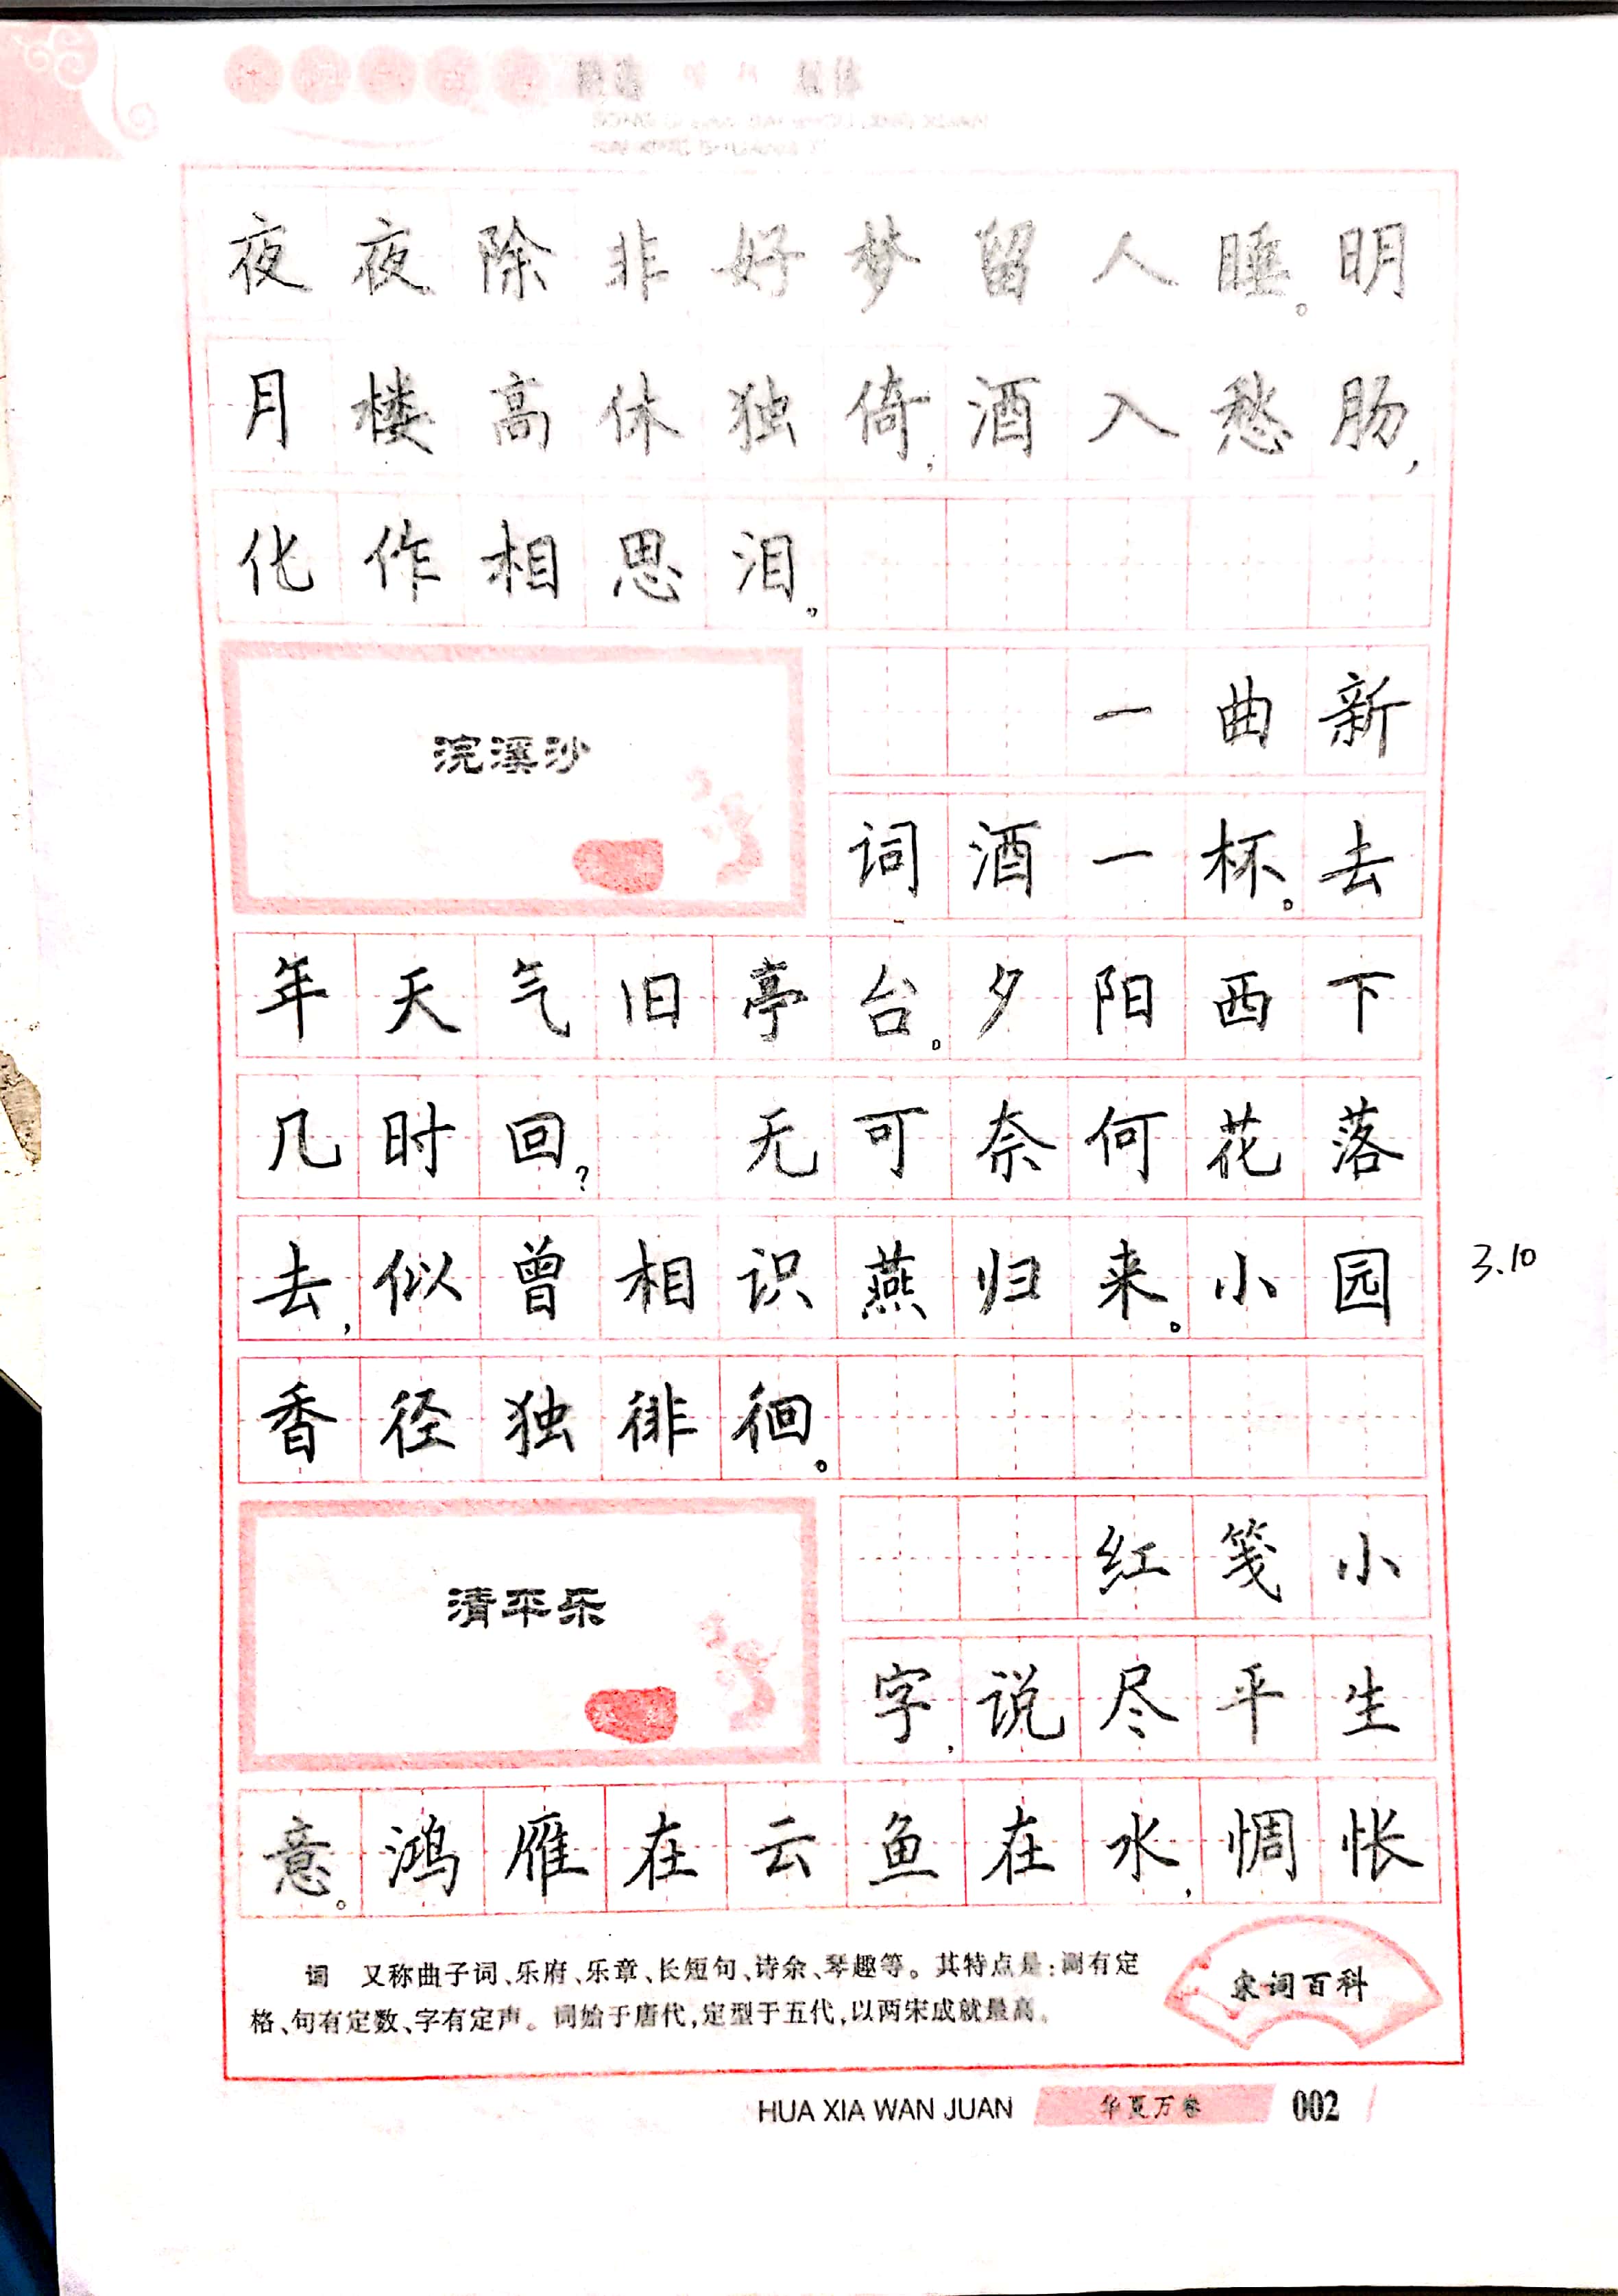 夜夜除非好梦留人睡。明
月楼高休独倚,酒入愁肠,
化作相思泪。
浣溪沙
一曲新
词酒一杯。去
年天气旧亭台。夕阳西下
几时回?无可奈何花落
去,似曾相识燕归来。小园
3.10
香径独徘徊。
清平乐
红笺小
字,说尽平生
意。鸿雁在云鱼在水,惆怅
词 又称曲子词、乐府、乐章、长短句、诗余、琴趣等。其特点是:调有定
格、句有定数、字有定声。词始于唐代,定型于五代,以两宋成就最高。
宋词百科
HUA XIA WAN JUAN 华夏万卷 002